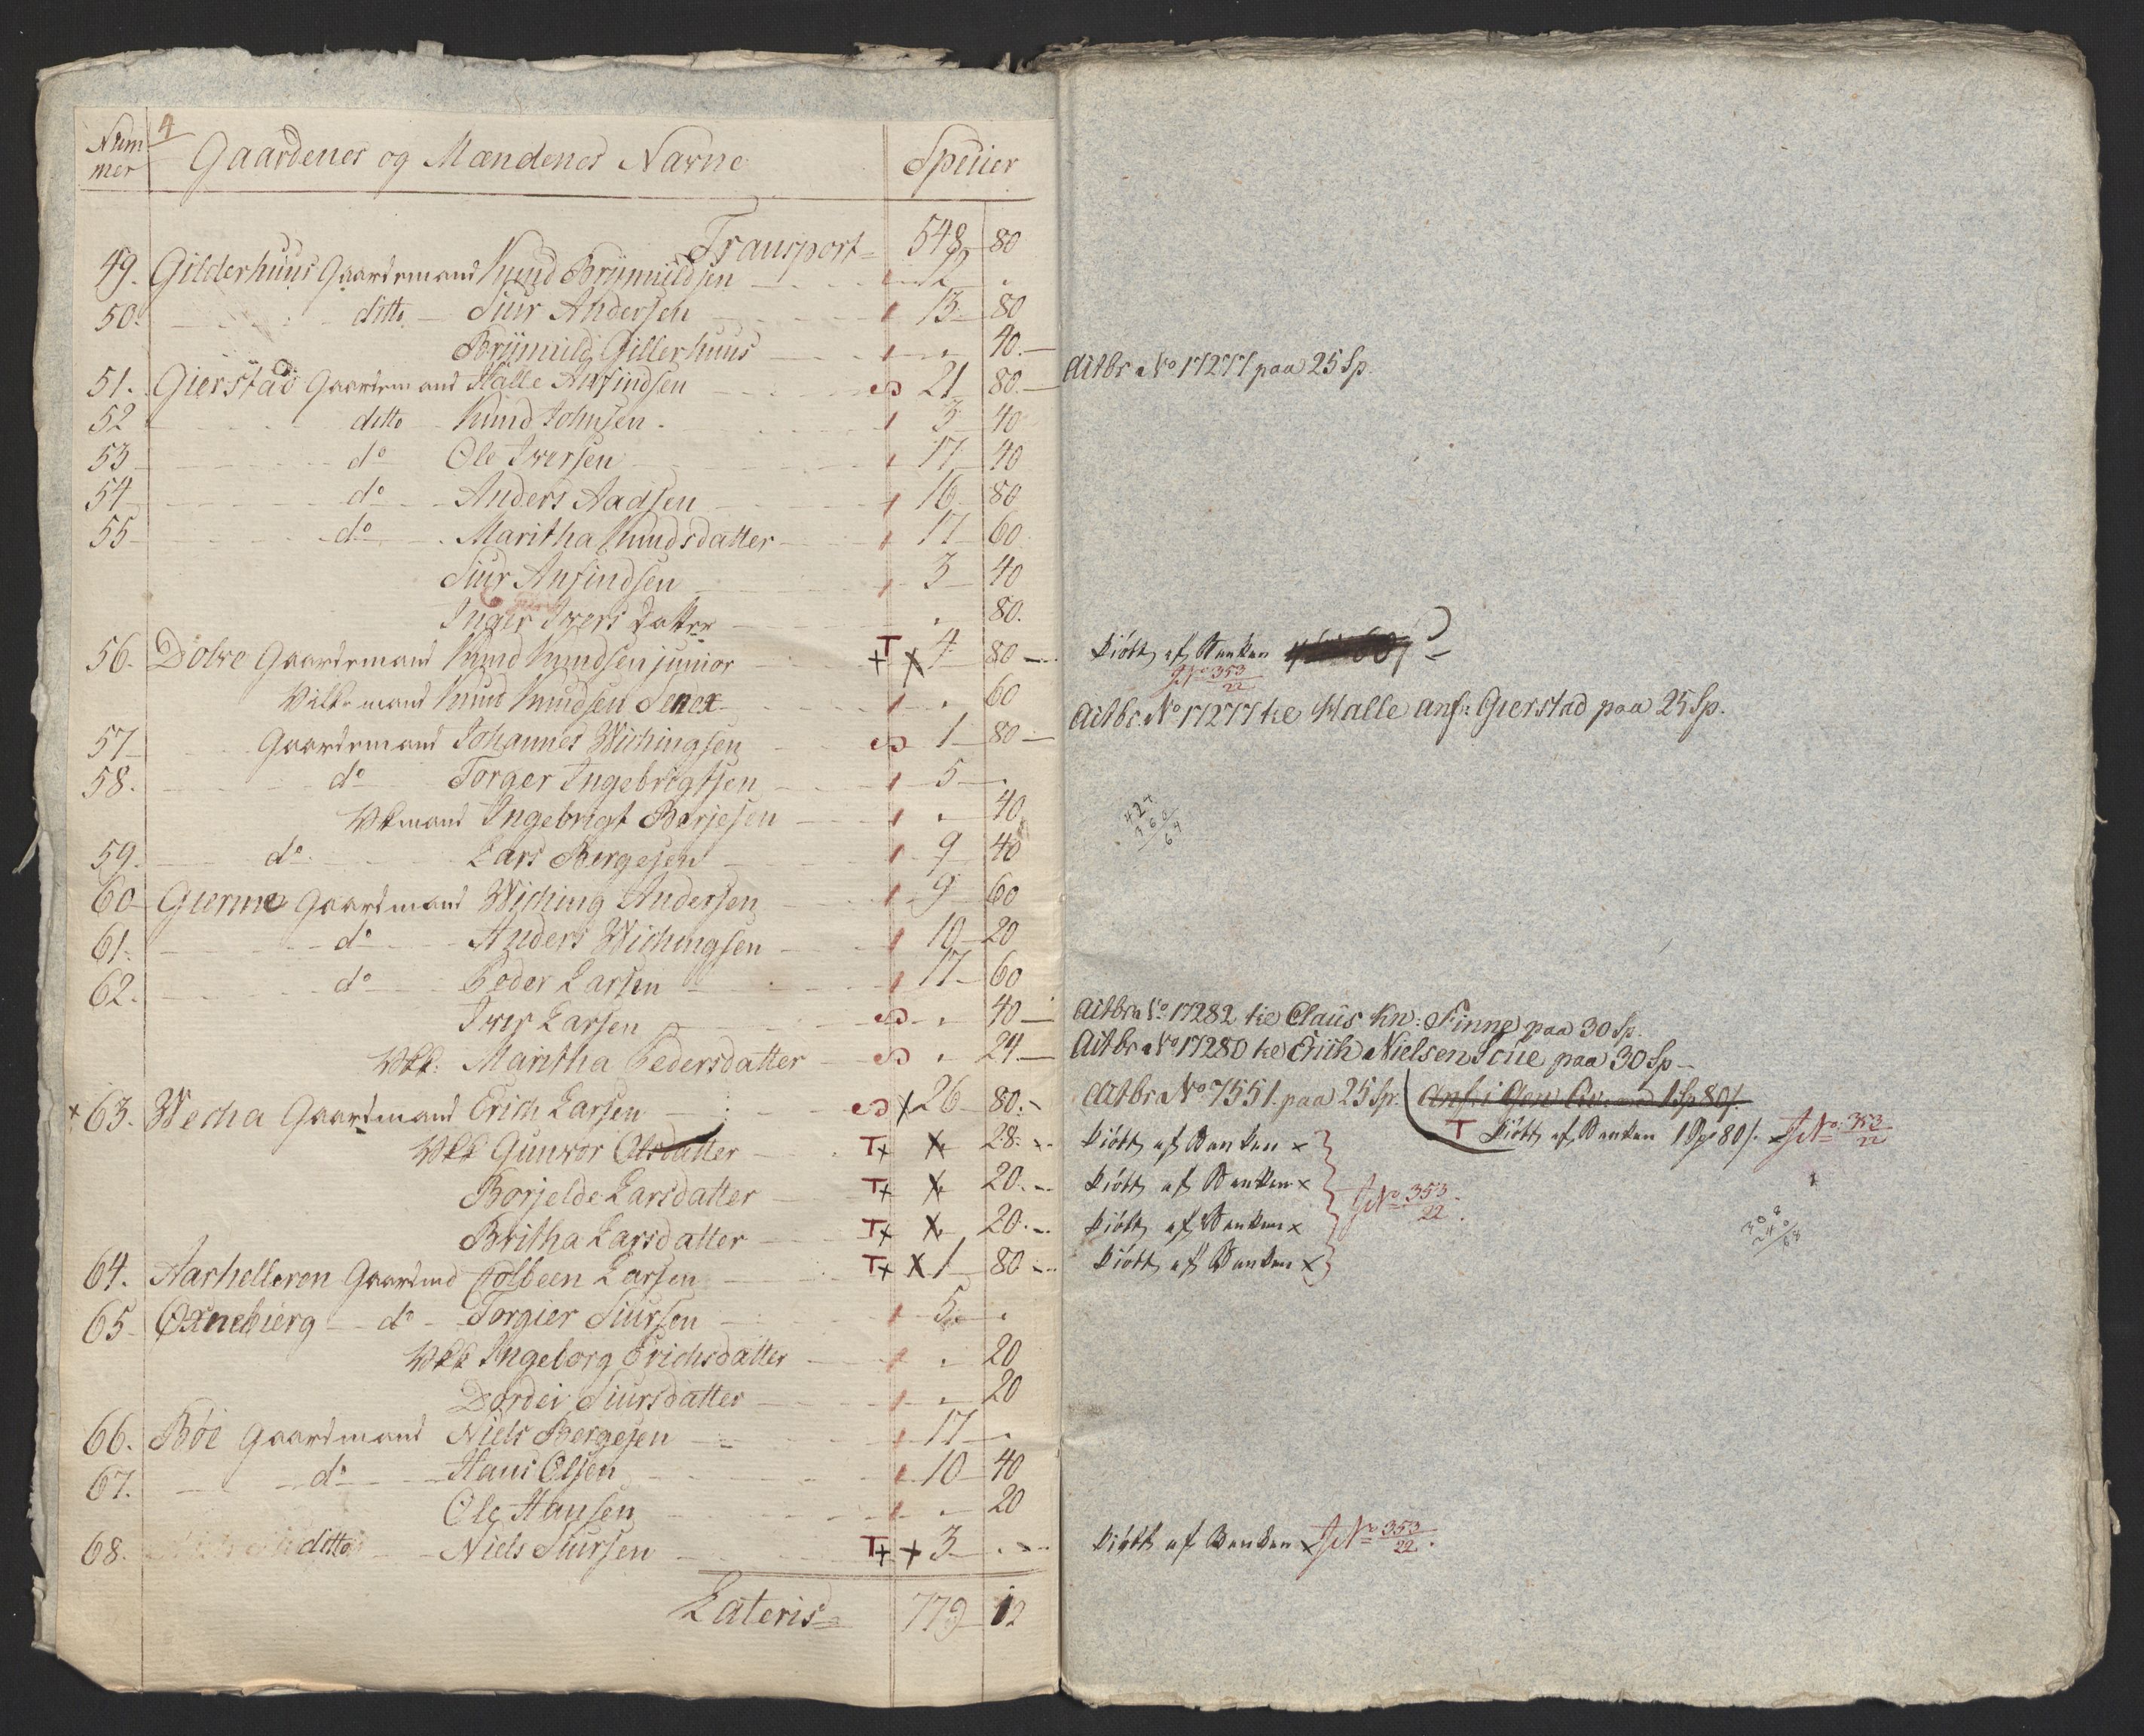 4
Num
mer
Gaardenes og Mændenes Navne
Specier
Transport 548 80
49. Gilderhuus Gaardemand Knud Brynnildsen 12 .
50. ditto Siur Andersen 13 80
Brynnild Gillerhuus . 40
51. Gierstad Gaardemand Halle Anfindsen 21 80
52 ditto Knud Johnsen 3 40
53 do Ole Iversen 17 40
54 do Anders Aadsen 16 80
55 do Maritha Knudsdatter 17 60
Siur Anfindsen 3 40
Inger Ivers datter . 80.
56. Dolve Gaardemand Knud Knudsen junior T+ x 4 80
Knud Knudsen Senor . 60
57 Gaardemand Johannes Wichingsen 1 80
58. do Torger Ingebrigtsen 5 .
mand Ingebrigt Borjesen . 40
59. do Lars Bergesen 9 40
60 Gierme Gaardmand Wiching Andersen 9 60
61. do Anders Wichingsen 10 20
62. do Peder Larsen 17 60
Iver Larsen . 40
Maritha Pedersdatter . 24
x 63. Wecha Gaardmand Erich Larsen x 26 80
Gunvor Olsdatter T+ x 28
Borjelde Larsdatter T+ x 20
Britha Larsdatter T+ x 20
64. Aarhelleren Gaardmd Colbeen Larsen T+ x 1 80
65 do Torgier Siursen 5 .
Ingeborg Erichsdatter . 20
Dordei Siursdatter . 20
66. Böe Gaardmand Niels Bergesen 17 .
67. do Hans Olsen 10 40
Ole Hansen . 20
68. ditto Niels Siursen T+ x 3 .
Lateris 779 12
No 17277 paa 25 Sp.
Kiöbt af Banken
No 353/22
No 17277 Halle anf: Gierstad paa 25 Sp.
424
360
64
No 17282 Claüs Kn: Finne paa 30 Sp.
No 17280 Erich Nielsen paa 30 Sp
No 7551. paa 25 Sp.
T Kiöbt af Banken 1 Sp 80 No 353/22
Kiöbt af Banken x
Kiöbt af Banken x
No 353/22.
Kiöbt af Banken x
308
240
68
Kiöbt af Banken x
Kiöbt af Banken x No 353/22.